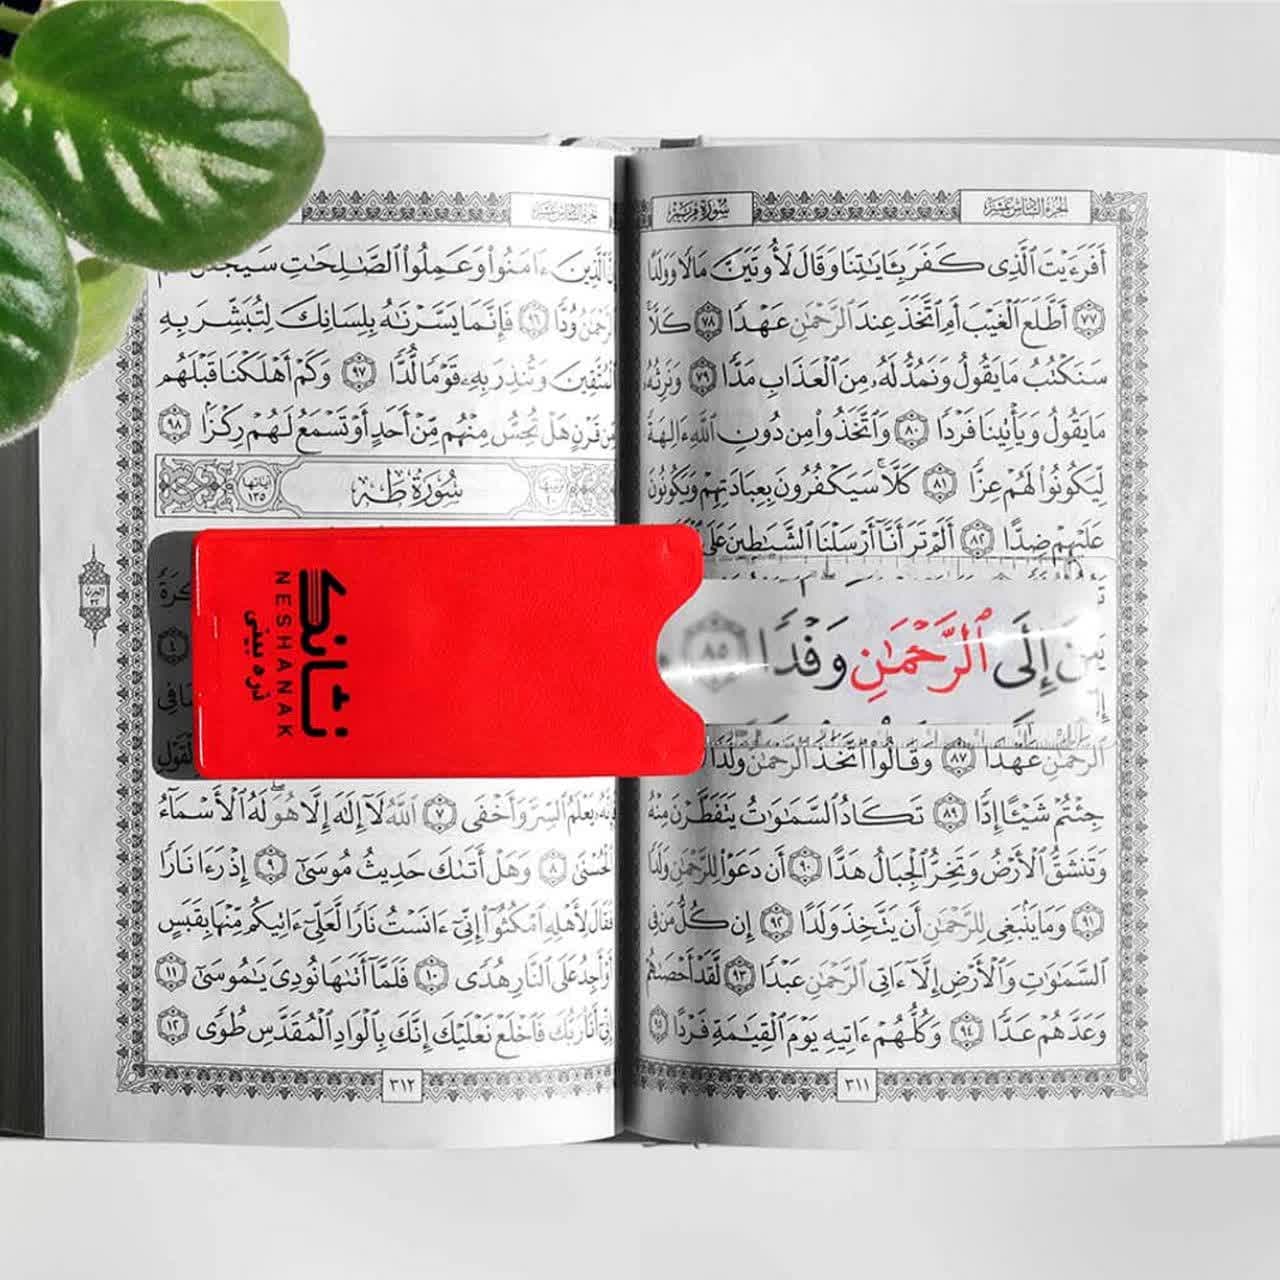 الجزء السادس عشر
سورة مريم
أَفَرَءَيْتَ ٱلَّذِى كَفَرَ بِـَٔايَـٰتِنَا وَقَالَ لَأُوتَيَنَّ مَالًا وَوَلَدًا
٧٧ أَطَّلَعَ ٱلْغَيْبَ أَمِ ٱتَّخَذَ عِندَ ٱلرَّحْمَـٰنِ عَهْدًا ٧٨ كَلَّا
سَنَكْتُبُ مَا يَقُولُ وَنَمُدُّ لَهُۥ مِنَ ٱلْعَذَابِ مَدًّا ٧٩ وَنَرِثُهُۥ
مَا يَقُولُ وَيَأْتِينَا فَرْدًا ٨٠ وَٱتَّخَذُوا۟ مِن دُونِ ٱللَّهِ ءَالِهَةً
لِّيَكُونُوا۟ لَهُمْ عِزًّا ٨١ كَلَّا سَيَكْفُرُونَ بِعِبَادَتِهِمْ وَيَكُونُونَ
عَلَيْهِمْ ضِدًّا ٨٢ أَلَمْ تَرَ أَنَّآ أَرْسَلْنَا ٱلشَّيَـٰطِينَ عَلَى
إِلَى ٱلرَّحْمَـٰنِ وَفْدًا ٨٥
ٱلرَّحْمَـٰنِ عَهْدًا ٨٧ وَقَالُوا۟ ٱتَّخَذَ ٱلرَّحْمَـٰنُ وَلَدًا
جِئْتُمْ شَيْـًٔا إِدًّا ٨٩ تَكَادُ ٱلسَّمَـٰوَٰتُ يَتَفَطَّرْنَ مِنْهُ
وَتَنشَقُّ ٱلْأَرْضُ وَتَخِرُّ ٱلْجِبَالُ هَدًّا ٩٠ أَن دَعَوْا۟ لِلرَّحْمَـٰنِ وَلَدًا
٩١ وَمَا يَنۢبَغِى لِلرَّحْمَـٰنِ أَن يَتَّخِذَ وَلَدًا ٩٢ إِن كُلُّ مَن فِى
ٱلسَّمَـٰوَٰتِ وَٱلْأَرْضِ إِلَّآ ءَاتِى ٱلرَّحْمَـٰنِ عَبْدًا ٩٣ لَّقَدْ أَحْصَىٰهُمْ
وَعَدَّهُمْ عَدًّا ٩٤ وَكُلُّهُمْ ءَاتِيهِ يَوْمَ ٱلْقِيَـٰمَةِ فَرْدًا ٩٥
٣١١
الجزء السادس عشر
ٱلَّذِينَ ءَامَنُوا۟ وَعَمِلُوا۟ ٱلصَّـٰلِحَـٰتِ
وُدًّا ٩٦ فَإِنَّمَا يَسَّرْنَـٰهُ بِلِسَانِكَ لِتُبَشِّرَ بِهِ
ٱلْمُتَّقِينَ وَتُنذِرَ بِهِۦ قَوْمًا لُّدًّا ٩٧ وَكَمْ أَهْلَكْنَا قَبْلَهُم
مِّن قَرْنٍ هَلْ تُحِسُّ مِنْهُم مِّنْ أَحَدٍ أَوْ تَسْمَعُ لَهُمْ رِكْزًۢا ٩٨
سورة طه
آياتها ١٣٥
نشانک
NESHANAK
ذره بینی
يَعْلَمُ ٱلسِّرَّ وَأَخْفَى ٧ ٱللَّهُ لَآ إِلَـٰهَ إِلَّا هُوَ لَهُ ٱلْأَسْمَآءُ
ٱلْحُسْنَىٰ ٨ وَهَلْ أَتَىٰكَ حَدِيثُ مُوسَىٰٓ ٩ إِذْ رَءَا نَارًا
فَقَالَ لِأَهْلِهِ ٱمْكُثُوٓا۟ إِنِّىٓ ءَانَسْتُ نَارًا لَّعَلِّىٓ ءَاتِيكُم مِّنْهَا بِقَبَسٍ
أَوْ أَجِدُ عَلَى ٱلنَّارِ هُدًى ١٠ فَلَمَّآ أَتَىٰهَا نُودِىَ يَـٰمُوسَىٰٓ ١١
إِنِّىٓ أَنَا۠ رَبُّكَ فَٱخْلَعْ نَعْلَيْكَ إِنَّكَ بِٱلْوَادِ ٱلْمُقَدَّسِ طُوًى ١٢
٣١٢